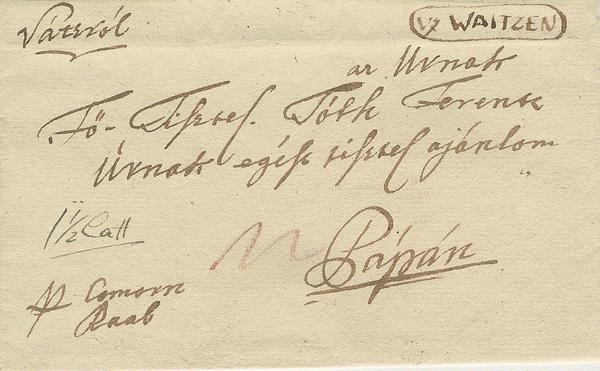 Vátzról
V: WAITZEN
az Úrnak
Fő-Tisztel. Tóth Ferentz
Úrnak egész tisztel ajánlom
1 1/2 Latt
Pápán
p Comorn
Raab